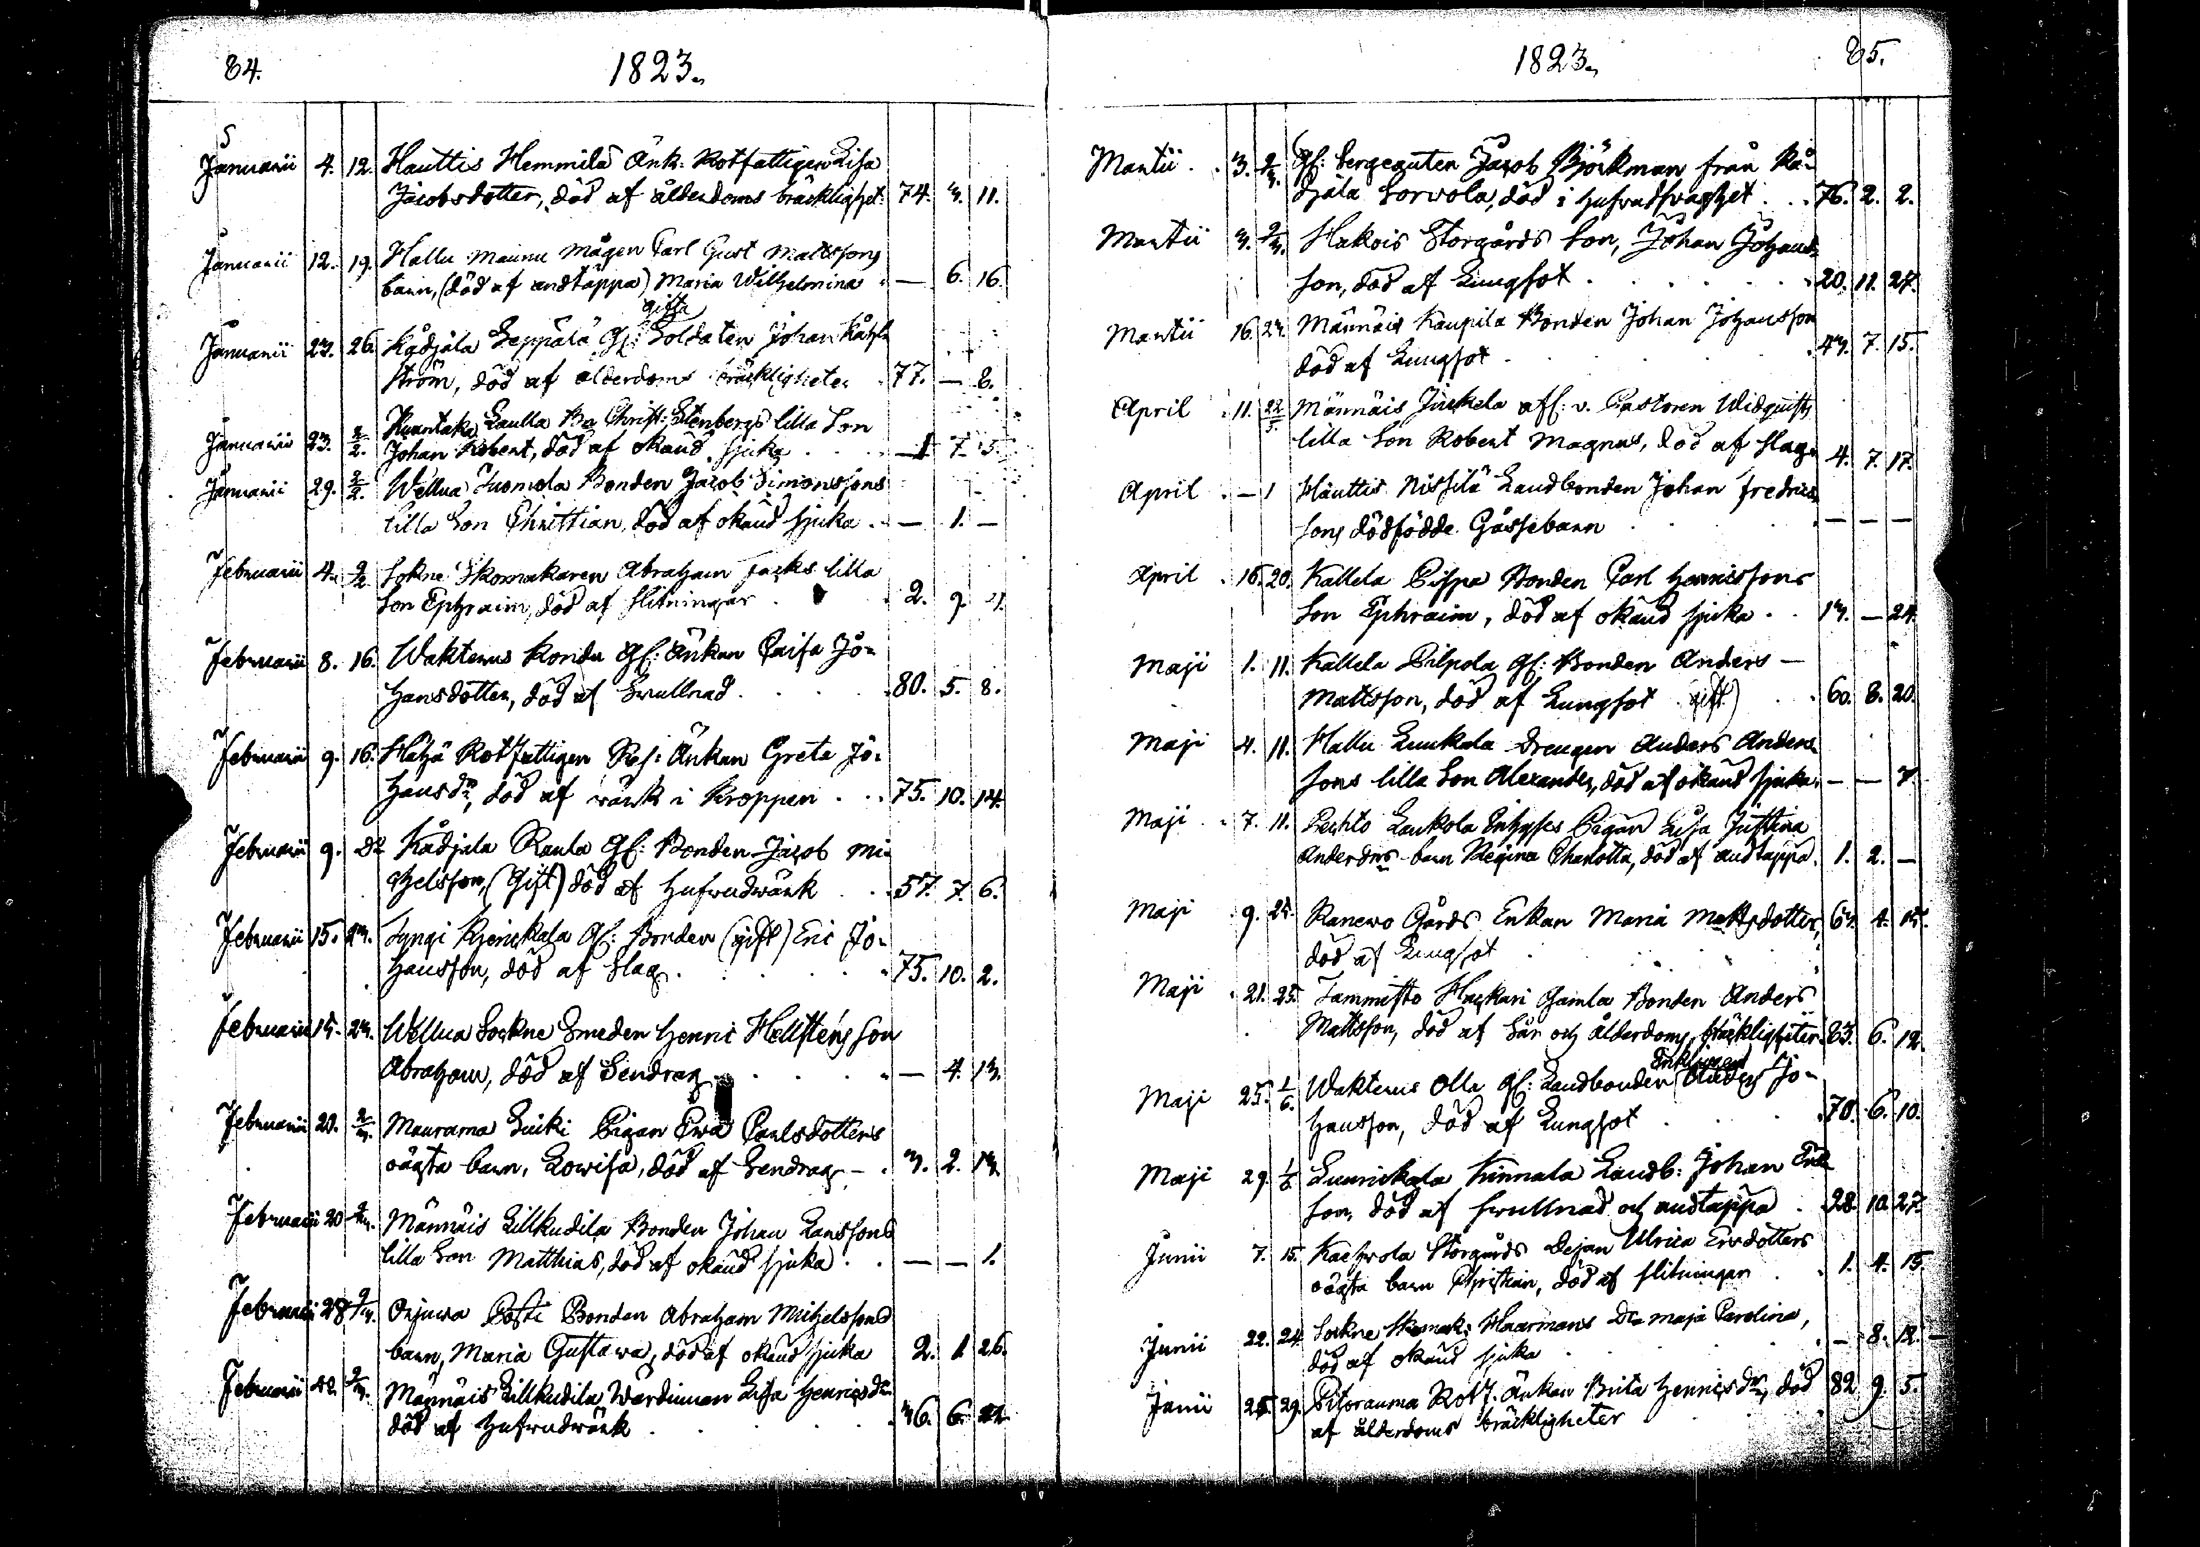 84.
1823.
Januarii 4. 12. Hauttis Hemmilä Änk: Rotfattigen Lisa
Jacobsdotter, död af ålderdoms bräcklighet. 74. 3. 11.
Januarii 12. 19. Hallu Maunu Mågen Carl Gust Mattssons
barn, (död af andtäppa) Maria Wilhelmina — 6. 16.
gifta
Januarii 23. 26. Kådjala Seppälä Gl: Soldaten Johan
ström, död af ålderdoms bräckligheter 77. — 8.
Laulla Christ: Stenbergs lilla Son
Januarii 23. 2/2. Johan Robert, död af okänd sjuka 1 7. 5.
Januarii 29. 2/2. Wellua Tuomola Bonden Jacob Simonssons
lilla Son Christian, död af okänd sjuka . — 1. —
Februarii 4. 9/2 Sokne Skomakaren Abraham Facks lilla
Son Ephraim, död af slitningar 2. 9.
Februarii 8. 16. Wakterus Kondu Gl: Änkan Caisa Jo-
hansdotter, död af Swullnad 80. 5. 8.
Februarii 9. 16. Haljä Rotfattigen Änkan Greta Jo-
hansdr, död af wärk i Kroppen . . 75. 10. 14.
Februarii 9. Do Kådjala Raula Gl: Bonden Jacob Mi-
chelsson, (Gift) död af Hufwudwärk 57. 7. 6.
Februarii 15. 23. Kjerickala Gl: Bonden (gift) Eric Jo-
hansson, död af Slag 75. 10. 2.
Februarii 15. 23. Wellua Sockne Smeden Henric Hellsténs Son
Abraham, död af Sendrag — 4. 13.
Februarii 20. 2/3. Maurama Luiki Pigan Ewa Carlsdotters
oägta barn, Lowisa, död af Sendrag — 3. 2. 13.
Februarii 20 2/3. Männäis Lillkudila Bonden Johan Larssons
lilla Son Matthias, död af okänd sjuka . . — — 1.
Februarii 28 2/3. Orjuwa Påsti Bonden Abraham Michelssons
barn, Maria Gustawa, död af okänd sjuka 2. 1 26.
Februarii 2/3. Männäis Lillkudila Wärdinnan Lisa Henricsdr
död af Hufwudwärk 36. 6.
85.
1823.
Martii . . 3. 9/3. Gl: Sergeanten Jacob Björkman från Kå-
djala Sorwola, död i Hufwudswaghet . . 76. 2. 2.
Martii 3. 9/3. Hakois Storgårds Son, Johan Johans-
son, död af Lungsot 20. 11. 27.
Martii 16. 23. Männäis Kaupila Bonden Johan Johansson
död af Lungsot 43. 7. 15.
April 11. Männäis Junkela afl: v. Pastoren Widquists
lilla Son Robert Magnus, död af Slag 4. 7. 17.
April . — 1 Hauttis Nissilä Landbonden Johan Fredrics
sons dödfödde Gåssebarn — — —
April . 16. 20. Kallela Pispa Bonden Carl Henricssons
Son Ephraim, död af okänd sjuka . . 13. — 24.
Maji 1. 11. Kallela Pilpola Gl: Bonden Anders —
Mattsson, död af Lungsot (gift) 60. 8. 20.
Maji 4. 11. Hallu Kuukala Drengen Anders Anders
sons lilla Son Alexander, död af okänd sjuka — — 7.
Maji . 7. 11. Laukola Pigan Lisa Justina
Andersdrs barn Regina Charlotta, död af andtäppa. 1. 2. —
Maji 9. 25. Ranewo Gårds Enkan Maria Mattsdotter, 63. 4. 15.
död af Lungsot
Maji . 21. 25. Tammisto Hackari Gamla Bonden Anders
Mattsson, död af Sår och ålderdoms bräckligheter. 83. 6. 12.
Enklingen
Maji 25. 1/6. Wakterus Olla gl: Landbonden Anders Jo-
hansson, död af Lungsot 70. 6. 10.
Maji 29. 1/6 Suurickala Kinnala Landb: Johan
son, död af Swullnad och andtäppa . 28. 10. 27.
Junii 7. 15. Storgårds Dejan Ulrica Ersdotters
oägta barn Christian, död af slitningar 1. 4. 15.
Junii 22. 24. Sockne Skomak: Haarmans Dr Maja Carolina,
död af okänd sjuka — 8. 12.
Junii 25. 29. Pitorauma Rotf. Änkan Brita Henricsdr, död 82 9. 5.
af ålderdoms bräckligheter